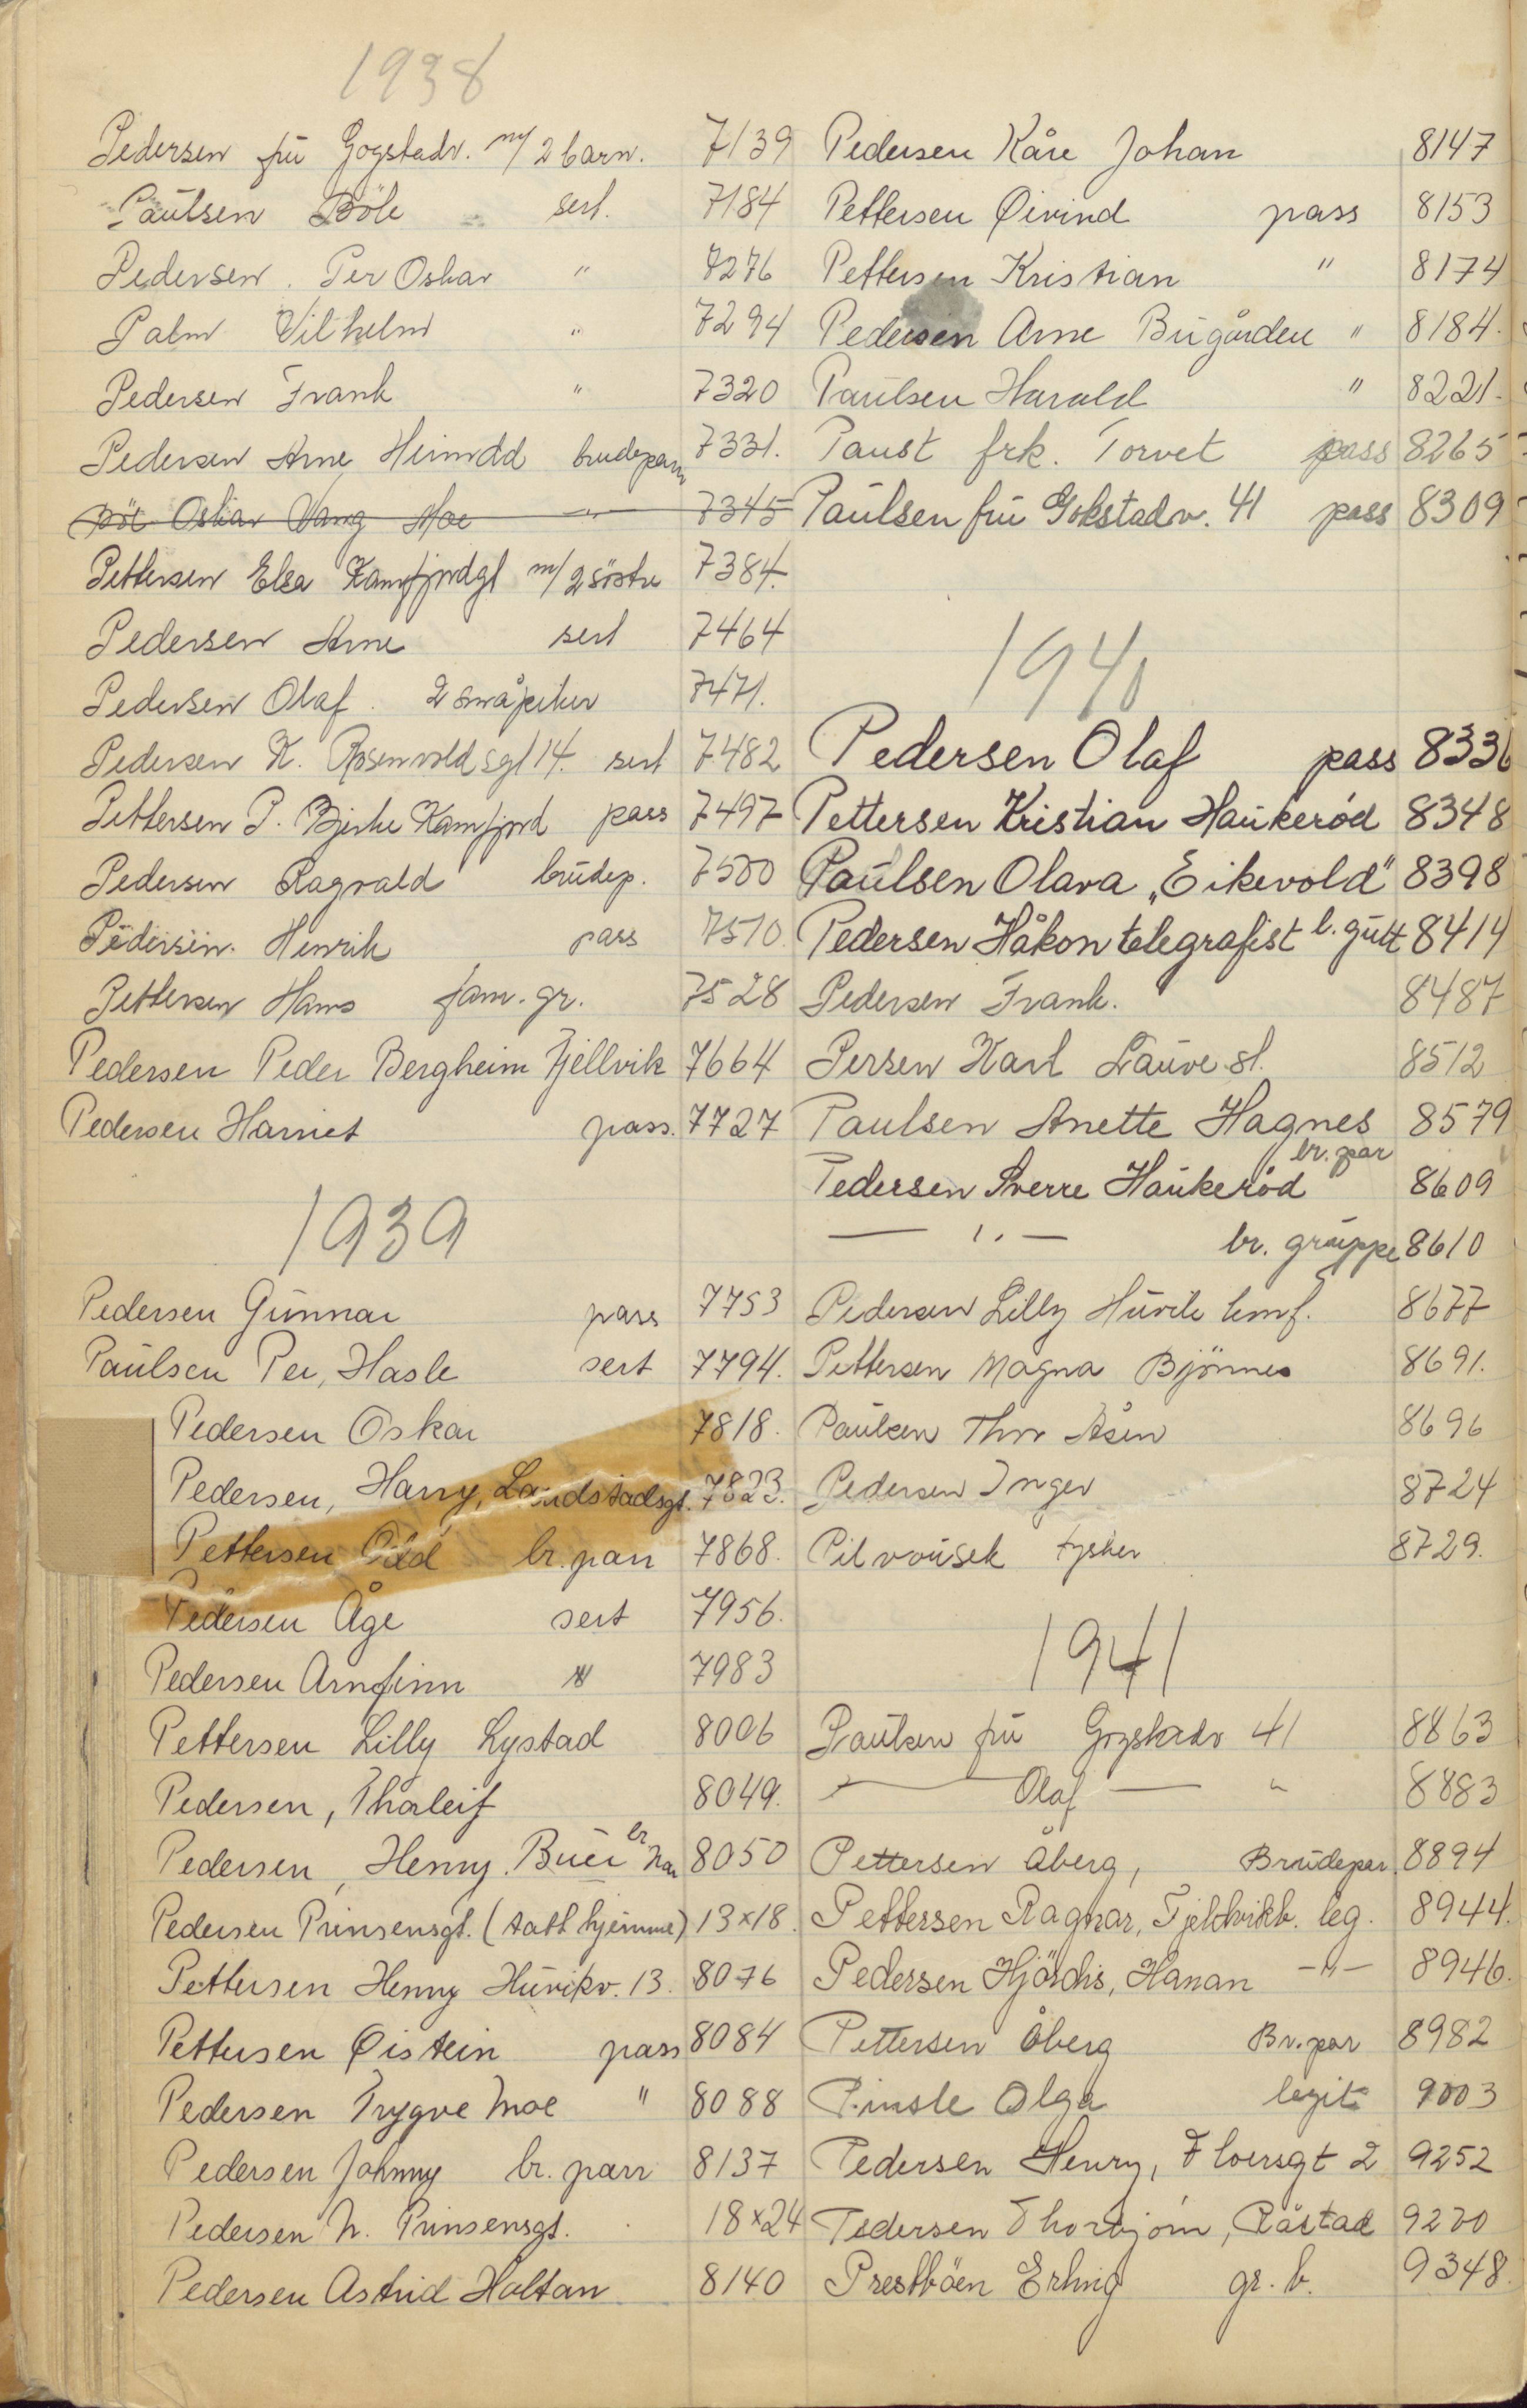 1938
Pedersen frü Gogstadv. m/ 2 barn. 7139
Paülsen Böle sert. 7184
Pedersen. Per Oskar " 7276
Palm Vilhelm " 7294
Pedersen Frank " 7320
Pedersen Arne Heimdal brudepar 7331.
Oskar Vang Moe " 7345
Pettersen Elsa Kamfjordgt m/ 2 söstre 7384.
Pedersen Arne sert 7464
Pedersen Olaf. 2 småpiker 7471.
Pedersen K. Rosenvoldsgt 14. sert 7482
Pettersen P. Bjerke Kamfjord pass 7497
Pedersen Ragnald brüdep. 7500
Pedersen. Henrik pass 7510.
Pettersen Hans fam. gr. 7528
Pedersen Peder Bergheim Fjellvik 7664
Pedersen Harriet pass. 7727
1939
Pedersen Günnar pass 7753
Paülsen Per, Hasle sert 7794.
Pedersen Oskar 7818.
Pedersen, Harry, Landstadsgt. 7823.
Pettersen Odd br. parr 7868.
Pedersen Åge sert 7956.
Pedersen Arnfinn " 7983
Pettersen Lilly Lystad 8006
Pedersen, Thorleif 8049.
Pedersen, Henry. Büer br 8050
Pedersen Prinsensgt. (tatt hjemme) 13x18.
Pettersen Henny Hüvikv. 13. 8076
Pettersen Øistein pass 8084
Pedersen Trygve Moe " 8088
Pedersen Johnny br. parr 8137
Pedersen N. Prinsensgt. 18x24
Pedersen Astrid Holtan 8140
Pedersen Kåre Johan 8147
Pettersen Øivind pass 8153
Pettersen Kristian " 8174
Pedersen Arne Bügården " 8184.
Paülsen Harald " 8221.
Paust frk. Torvet pass 8265
Paülsen frü Gokstadv. 41 pass 8309
1940
Pedersen Olaf pass 8336
Pettersen Kristian Haükeröd 8348
Paülsen Olava „Eikevold" 8398
Pedersen Håkon telegrafist l. gütt 8414
Pedersen Frank. 8487
Persen Karl Laüve st. 8512
Paulsen Anette Hagnes 8579
Pedersen Sverre Haükeröd br. par 8609
— " — br. grüppe 8610
Pedersen Lilly Hüvik kmf. 8677
Pettersen Magna Bjönnes 8691.
Paülsen Thor Åsen 8696
Pedersen Inger 8724
Pilvoüsek tysker 8729.
1941
Paülsen frü Gogstadv 41 8863
— Olaf — " 8883
Pettersen Åberg, Brüdepar 8894
Pettersen Ragnar, Fjellvikb. leg. 8944.
Pedersen Hjördis, Hanan —"— 8946.
Pettersen Åberg Br. par 8982
Pinsle Olga legit. 9003
Pedersen Henry, Floersgt 2 9252
Pedersen Thorbjörn, Råstad 9270
Prestböen Erling gr. b. 9348.